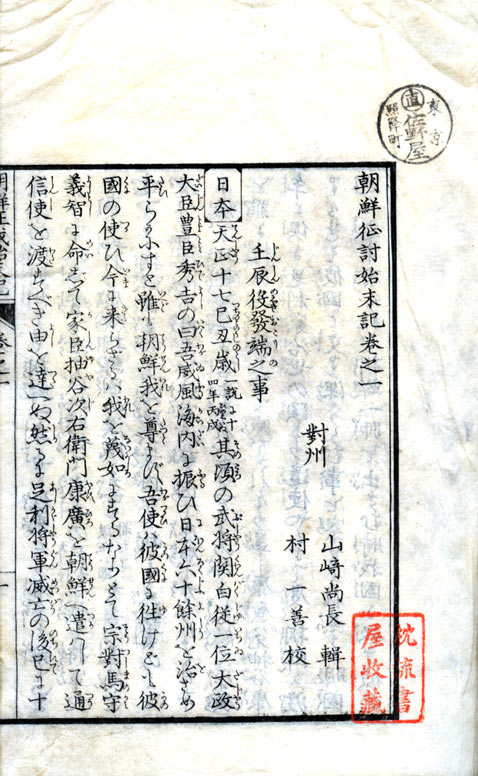 東京
直
佐野屋
照降町
朝鮮征討始末記卷之一
對州
山﨑尚長 輯
村 一善 校
壬辰役發端之事
日本 天正十七己丑歳 一説に十四年丙戌 其頃の武将関白従一位大政
大臣豊臣秀吉の曰吾威風海内に振ひ日本六十餘州を治め
平らかにすと雖も朝鮮我を尊ばず吾使ハ彼國に往けども彼
國の使ひ今に来らざるハ我を蔑如にするなりとて宗對馬守
義智に命じて家臣柚谷次右衛門康廣を朝鮮へ遣ハして通
信使を渡すべき由を達しぬ然るに足利将軍滅亡の後已に十
枕流書屋收藏